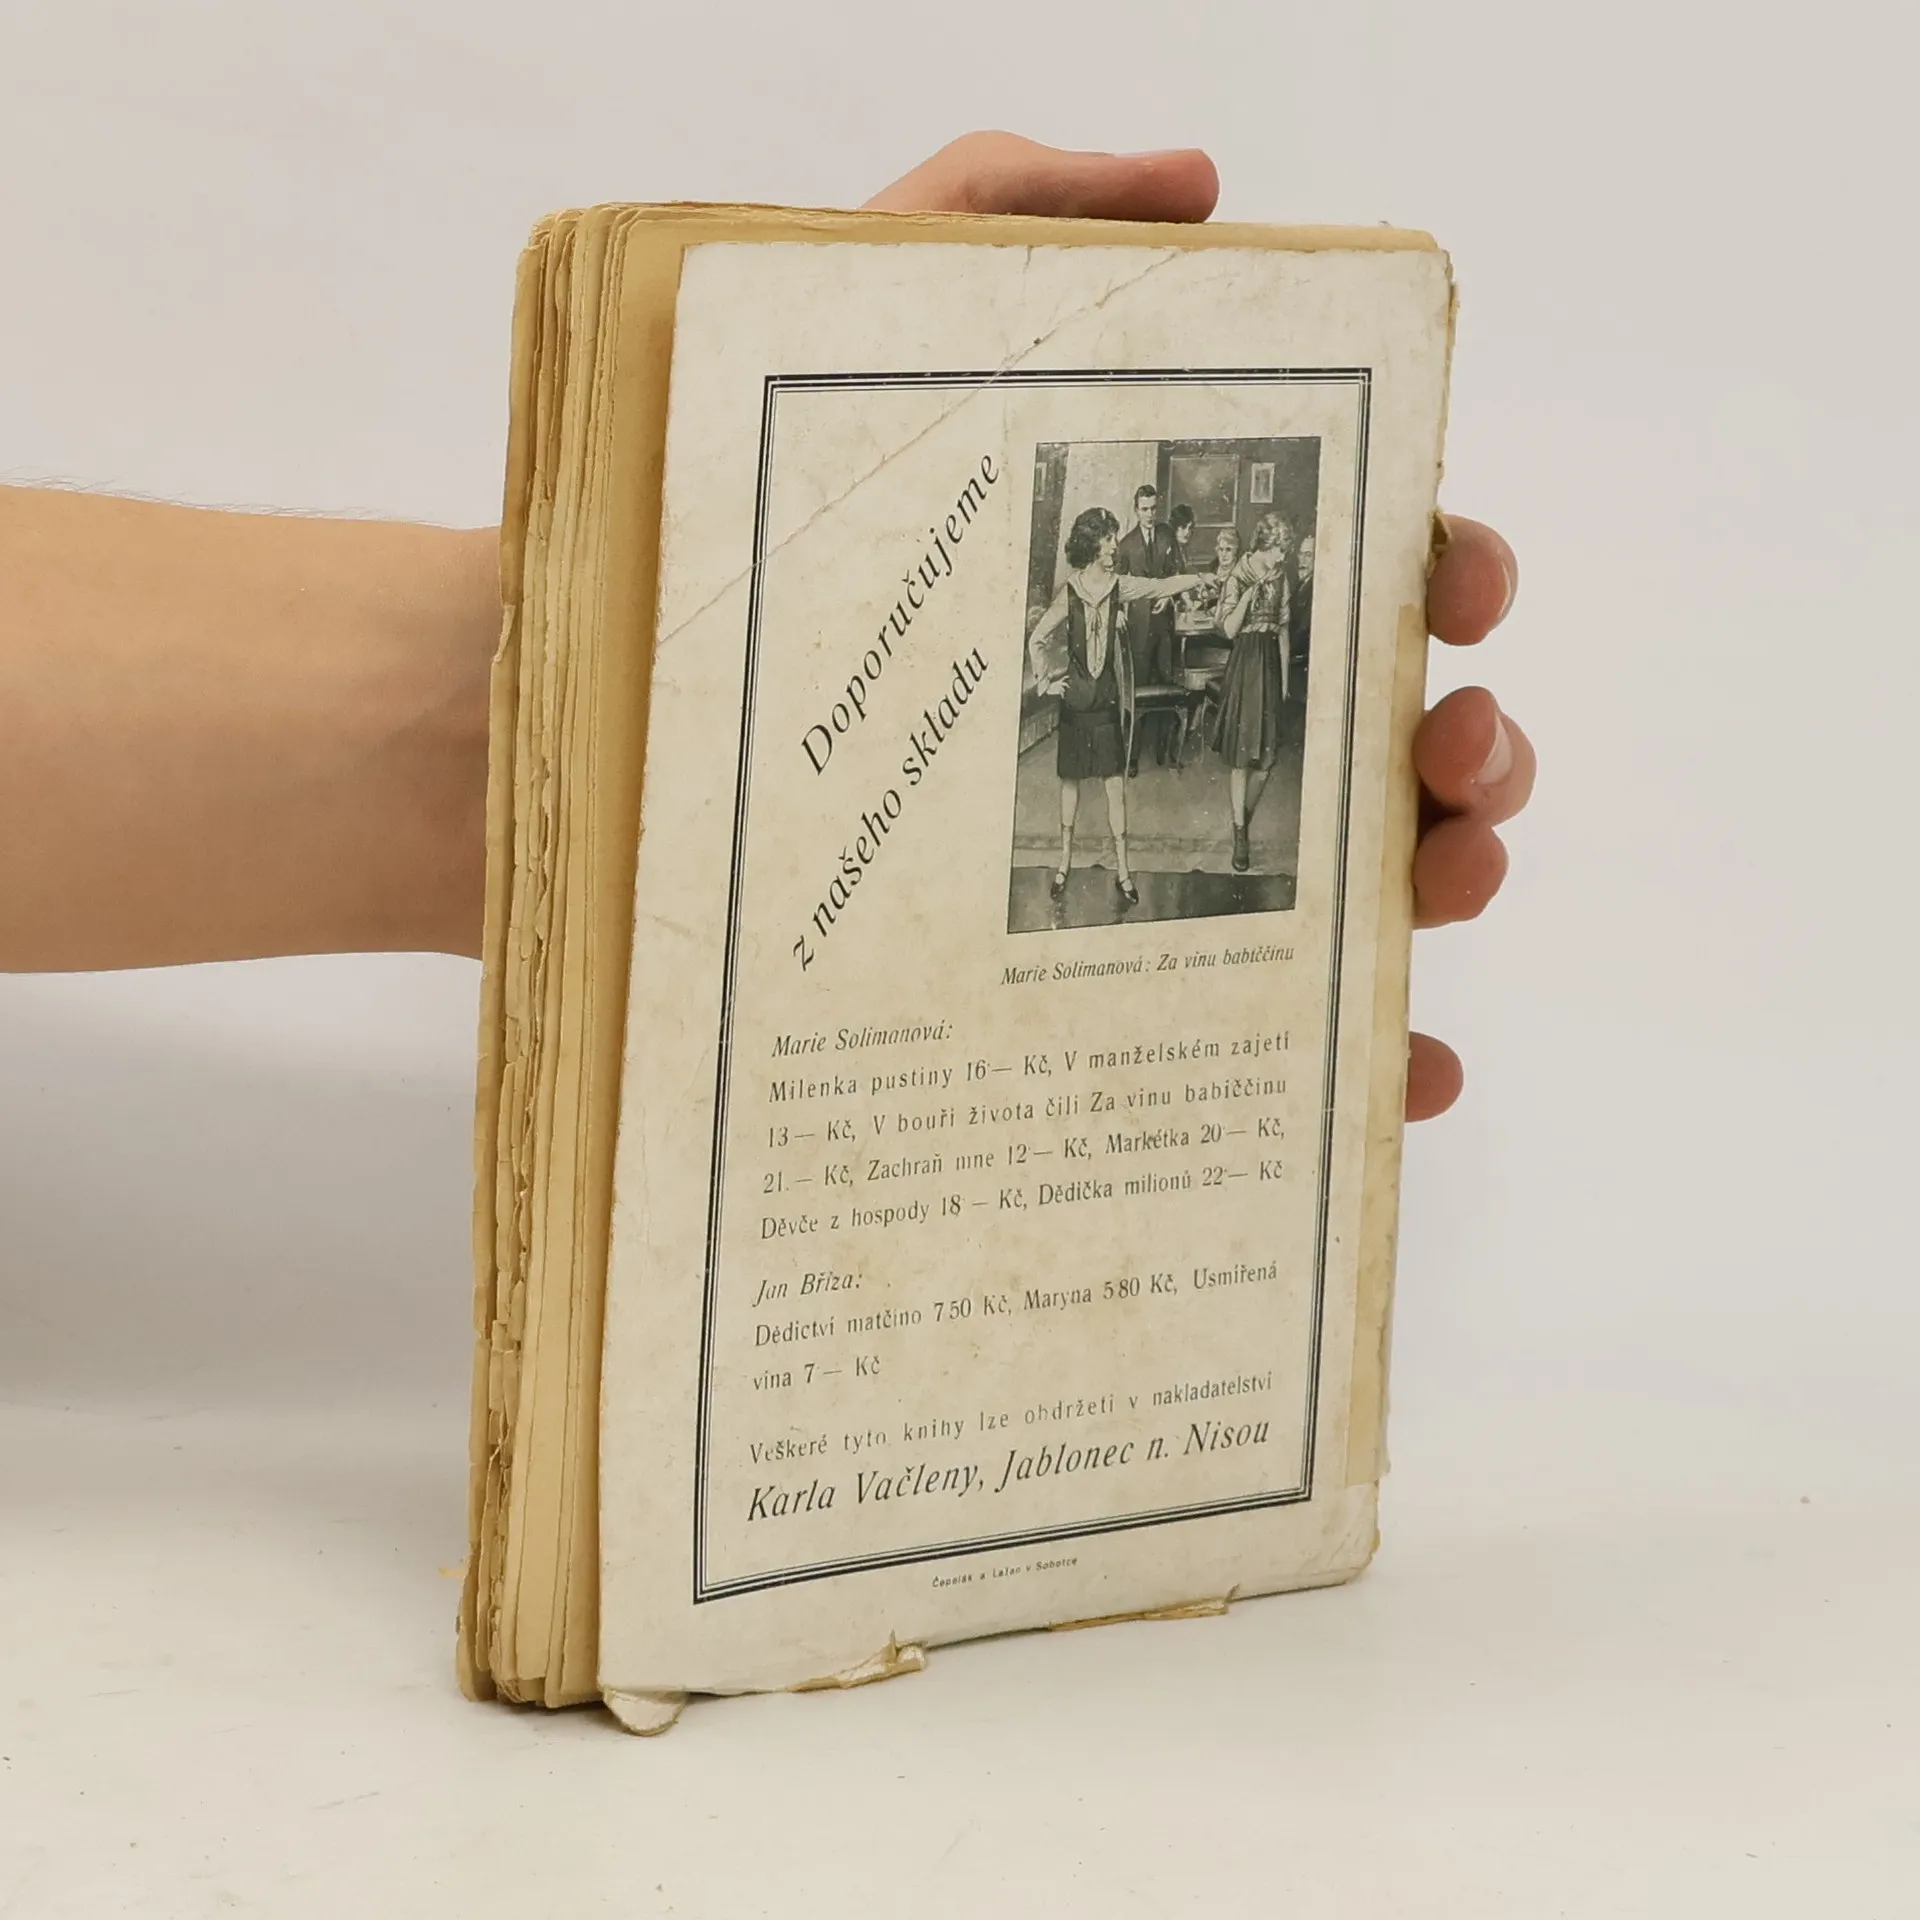 Doporučujeme
z našeho skladu
Marie Solimanová: Za vinu babiččinu
Marie Solimanová:
Milenka pustiny 16·— Kč, V manželském zajetí
13 — Kč, V bouři života čili Za vinu babiččinu
21.— Kč, Zachraň mne 12·— Kč, Markétka 20·— Kč,
Děvče z hospody 18·— Kč, Dědička milionů 22·— Kč
Jan Bříza:
Dědictví matčino 7 50 Kč, Maryna 5 80 Kč, Usmířená
vina 7·— Kč
Veškeré tyto knihy lze obdržeti v nakladatelství
Karla Vačleny, Jablonec n. Nisou
a Lažan v Sobotce